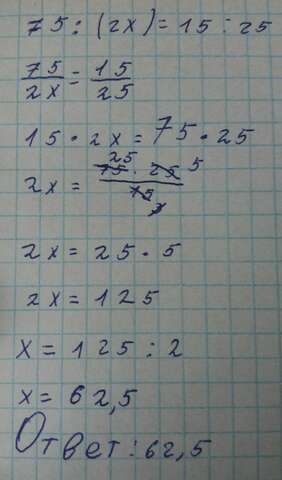 75 : (2x) = 15 : 25
75/2x = 15/25
15 · 2x = 75 · 25
2x = 75 25 · 25 5 / 15 3
2x = 25 · 5
2x = 125
x = 125 : 2
x = 62,5
Ответ: 62,5